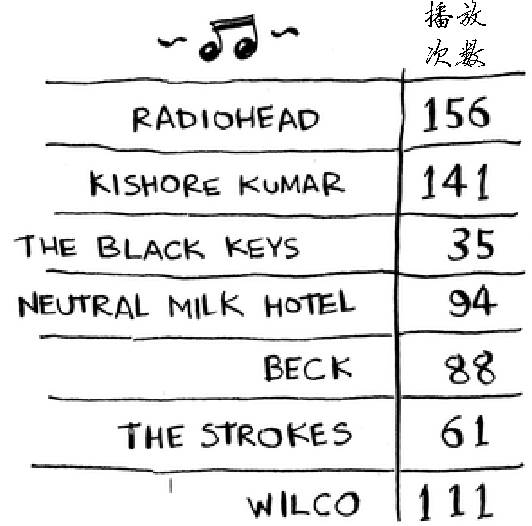 播放
次数
RADIOHEAD 156
KISHORE KUMAR 141
THE BLACK KEYS 35
NEUTRAL MILK HOTEL 94
BECK 88
THE STROKES 61
WILCO 111